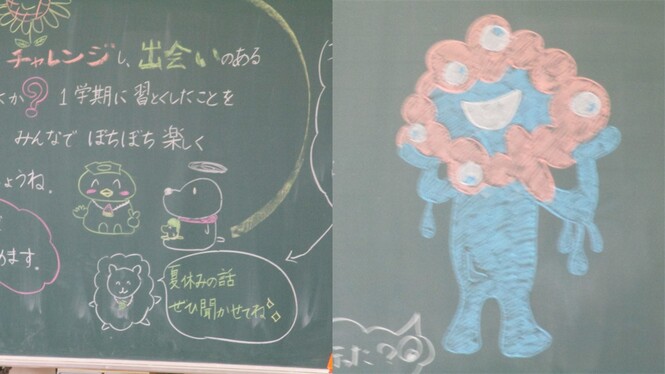 チャレンジし、出会いのある
くか? 1学期に習とくしたことを
みんなで ぼちぼち 楽しく
ょうね。
めます。
夏休みの話
ぜひ聞かせてね
た?